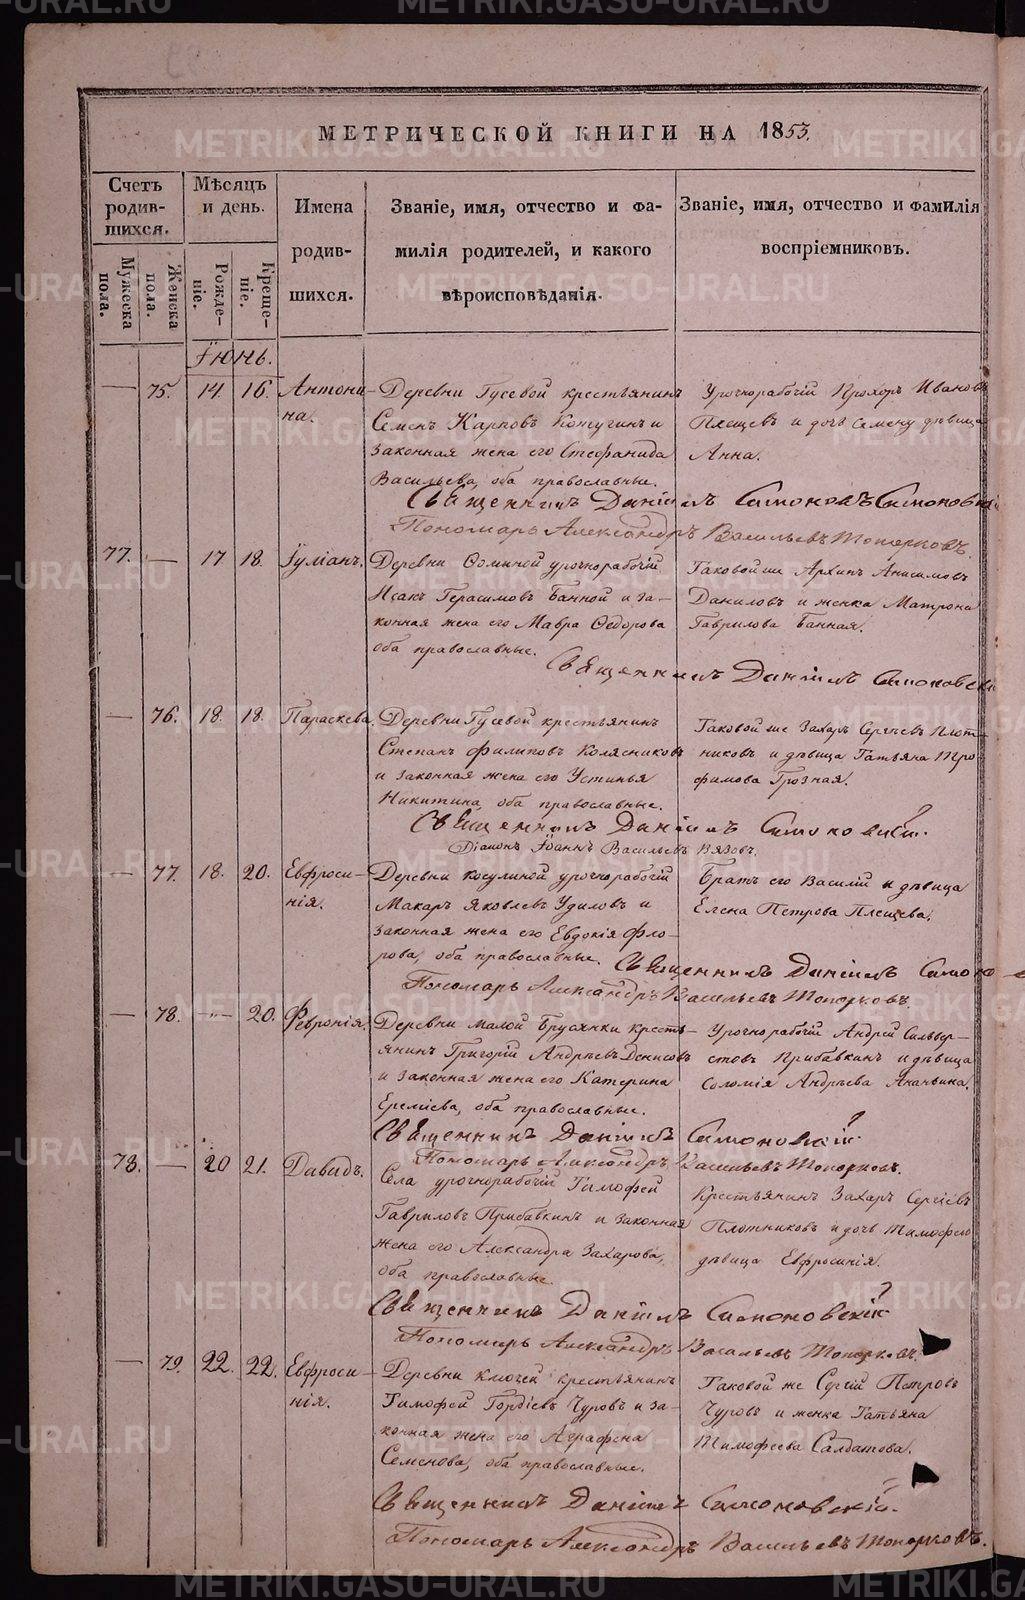 МЕТРИЧЕСКОЙ КНИГИ НА 1853.
Счетъ родив-шихся.
Мужеска пола.
Женска пола.
Мѣсяцъ и день.
Рожде-ніе.
Креще-ніе.
Имена родив-шихся.
Званіе, имя, отчество и фа-
милія родителей, и какого
вѣроисповѣданія.
Званіе, имя, отчество и фамилія
воспріемниковъ.
Іюнь.
— 75. 14. 16. Антони-
на.
Деревни Гусевой крестьянинъ
Семенъ Карповъ Котугинъ и
законная жена его Стефанида
Васильева, оба православные.
Урочнорабочій Прохоръ Ивановъ
Плещевъ и дочь Семену дѣвица
Анна.
Священникъ Даніилъ Симоновъ Симоновскій
Пономарь Александръ Васильевъ Топорковъ.
77. — 17 18. Іуліанъ.
Деревни Соминой урочнорабочій
Исакъ Герасимовъ Банной и за-
конная жена его Мавра Ѳедорова
оба православные.
Таковой же Архипъ Анисимовъ
Даниловъ и женка Матрона
Гаврилова Банная.
Священникъ Даніилъ Симоновскі
— 76. 18. 18. Параскева.
Деревни Гусевой крестьянинъ
Степанъ Филиповъ Колясниковъ
и законная жена его Устинья
Никитина, оба православные.
Таковой же Захаръ Сергѣевъ Плот-
никовъ и дѣвица Татьяна Тро-
фимова Грозная.
Священникъ Даніилъ Симоновскій.
Діаконъ Іоаннъ Васильевъ Вязовъ.
— 77. 18. 20. Евфроси-
нія.
Деревни Косулиной урочнорабочій
Макаръ Яковлевъ Удиловъ и
законная жена его Евдокія Фло-
рова, оба православные.
Братъ его Василій и дѣвица
Елена Петрова Плещева.
Священникъ Даніилъ Симоно
Пономарь Александръ Васильевъ Топорковъ
— 78. — 20. Февронія.
Деревни Малой Брусянки кресть-
янинъ Григорій Андреевъ Денисовъ
и законная жена его Катерина
Еремѣева, оба православные.
Урочнорабочій Андрей Сильвер-
стовъ Прибавкинъ и дѣвица
Соломія Андреева Ананьина.
Священникъ Даніилъ Симоновскій.
Пономарь Александръ Васильевъ Топорковъ.
78. — 20 21. Давидъ.
Села урочнорабочій Тимофей
Гавриловъ Прибавкинъ и законная
жена его Александра Захарова,
оба православные.
Крестьянинъ Захаръ Сергѣевъ
Плотниковъ и дочь Тимофею
дѣвица Евфросинія.
Священникъ Даніилъ Симоновскій
Пономарь Александръ Васильевъ Топорковъ.
— 79. 22. 22. Евфроси-
нія.
Деревни Ключей крестьянинъ
Тимофей Гордѣевъ Чуровъ и за-
конная жена его Аграфена
Семенова, оба православные.
Таковой же Сергій Петровъ
Чуровъ и женка Татьяна
Тимофеева Салдатова.
Священникъ Даніилъ Симоновскій.
Пономарь Александръ Васильевъ Топорковъ.
METRIKI.GASO-URAL.RU